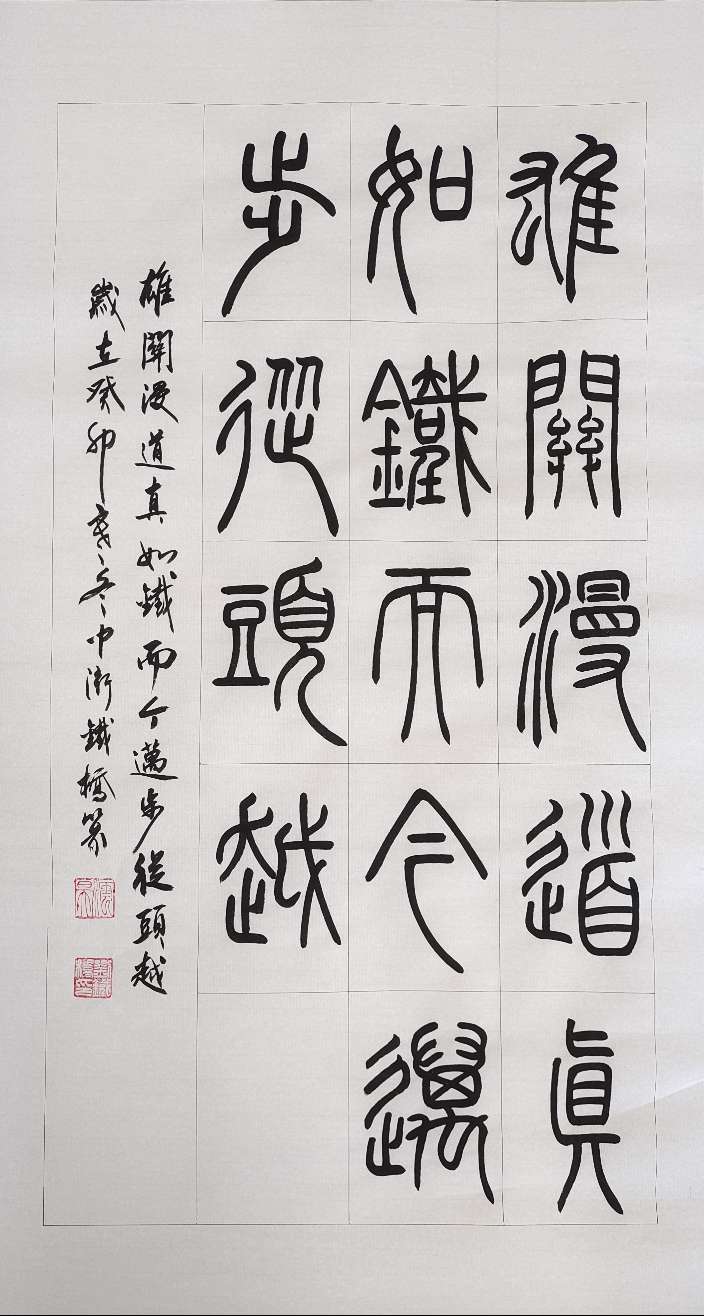 雄關漫道真
如鐵而今邁
步從頭越
雄關漫道真如鐵而今邁步從頭越
歲在癸卯孟冬中衛鐵橋篆